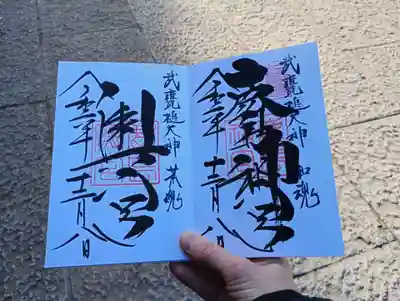 武甕槌大神 和魂
鹿島神宮
令和二年十二月八日
武甕槌大神 荒魂
奥宮
令和二年十二月八日